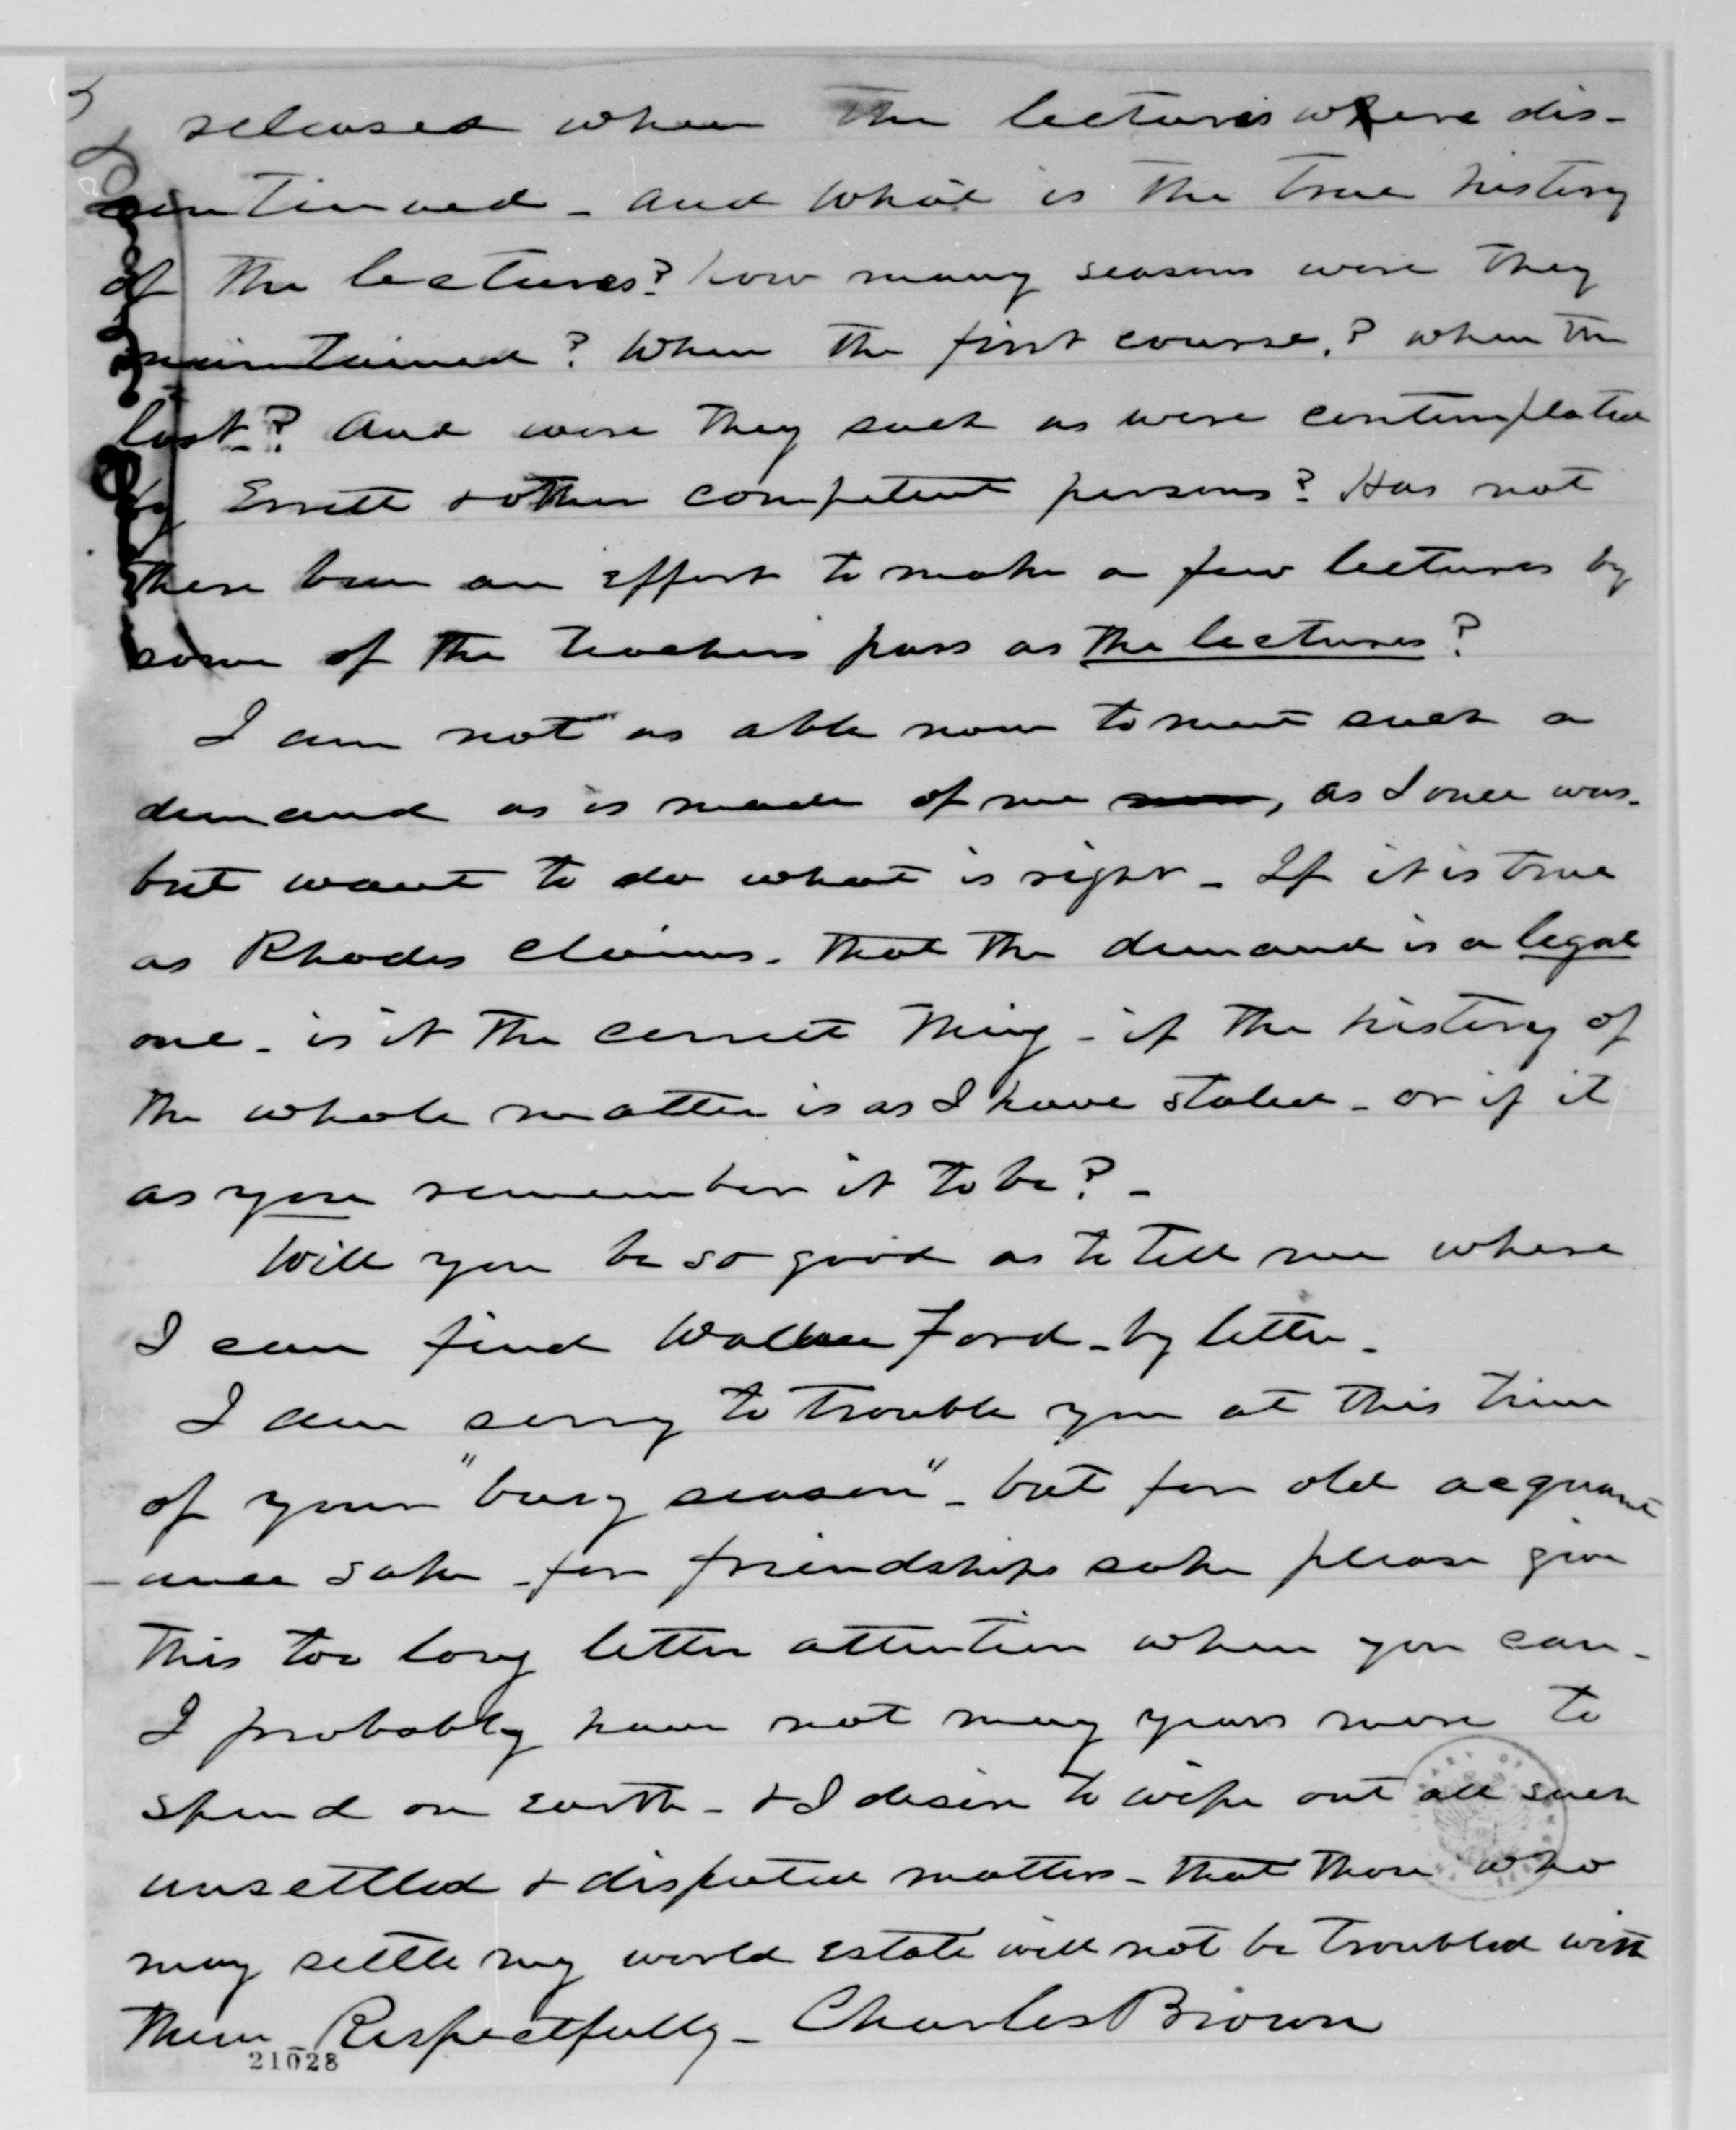 released when the lectures where dis-
continued - and what is the true history
of the lectures? how many seasons were they
maintained? When the first course,? when the
last? And were they such as were contemplated
by Errett & other competent persons? Has not
there been an effort to make a few lectures by
some of the teachers pass as the lectures?
I am not as able now to meet such a
demand as is made of me now, as I once was.
but want to do what is right - If it is true
as Rhodes claims - that the demand is a legal
one - is it the correct thing - if the history of
the whole matter is as I have stated - or if it
as you remember it to be? -
Will you be so good as to tell me where
I can find Wallace Ford - by letter -
I am sorry to trouble you at this time
of your "busy season" - but for old acquaint
- ance sake - for friendships sake please give
this too long letter attention when you can -
I probably have not many years more to
spend on earth - & I desire to wipe out all such
unsettled & disputed matters - that those who
may settle my world estate will not be troubled with
them - Respectfully - Charles Brown
21028